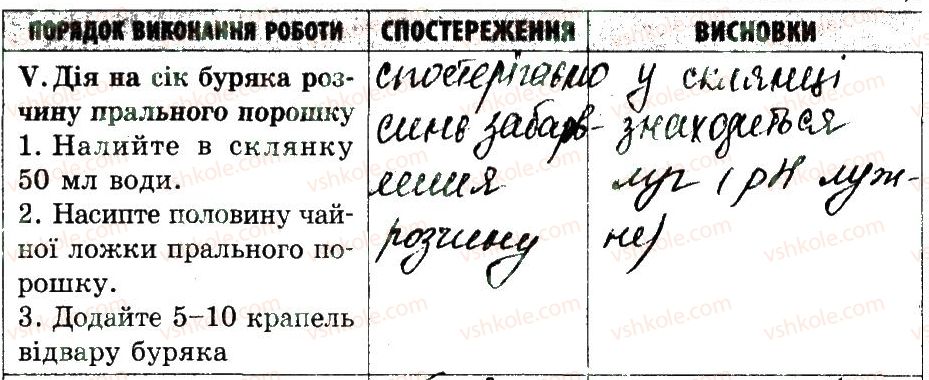 ПОРЯДОК ВИКОНАННЯ РОБОТИ
СПОСТЕРЕЖЕННЯ
ВИСНОВКИ
V. Дія на сік буряка роз-
чину прального порошку
1. Налийте в склянку
50 мл води.
2. Насипте половину чай-
ної ложки прального по-
рошку.
3. Додайте 5–10 крапель
відвару буряка
спостерігаємо
синє забарв-
лення
розчину
у склянці
знаходиться
луг (pH луж-
не)